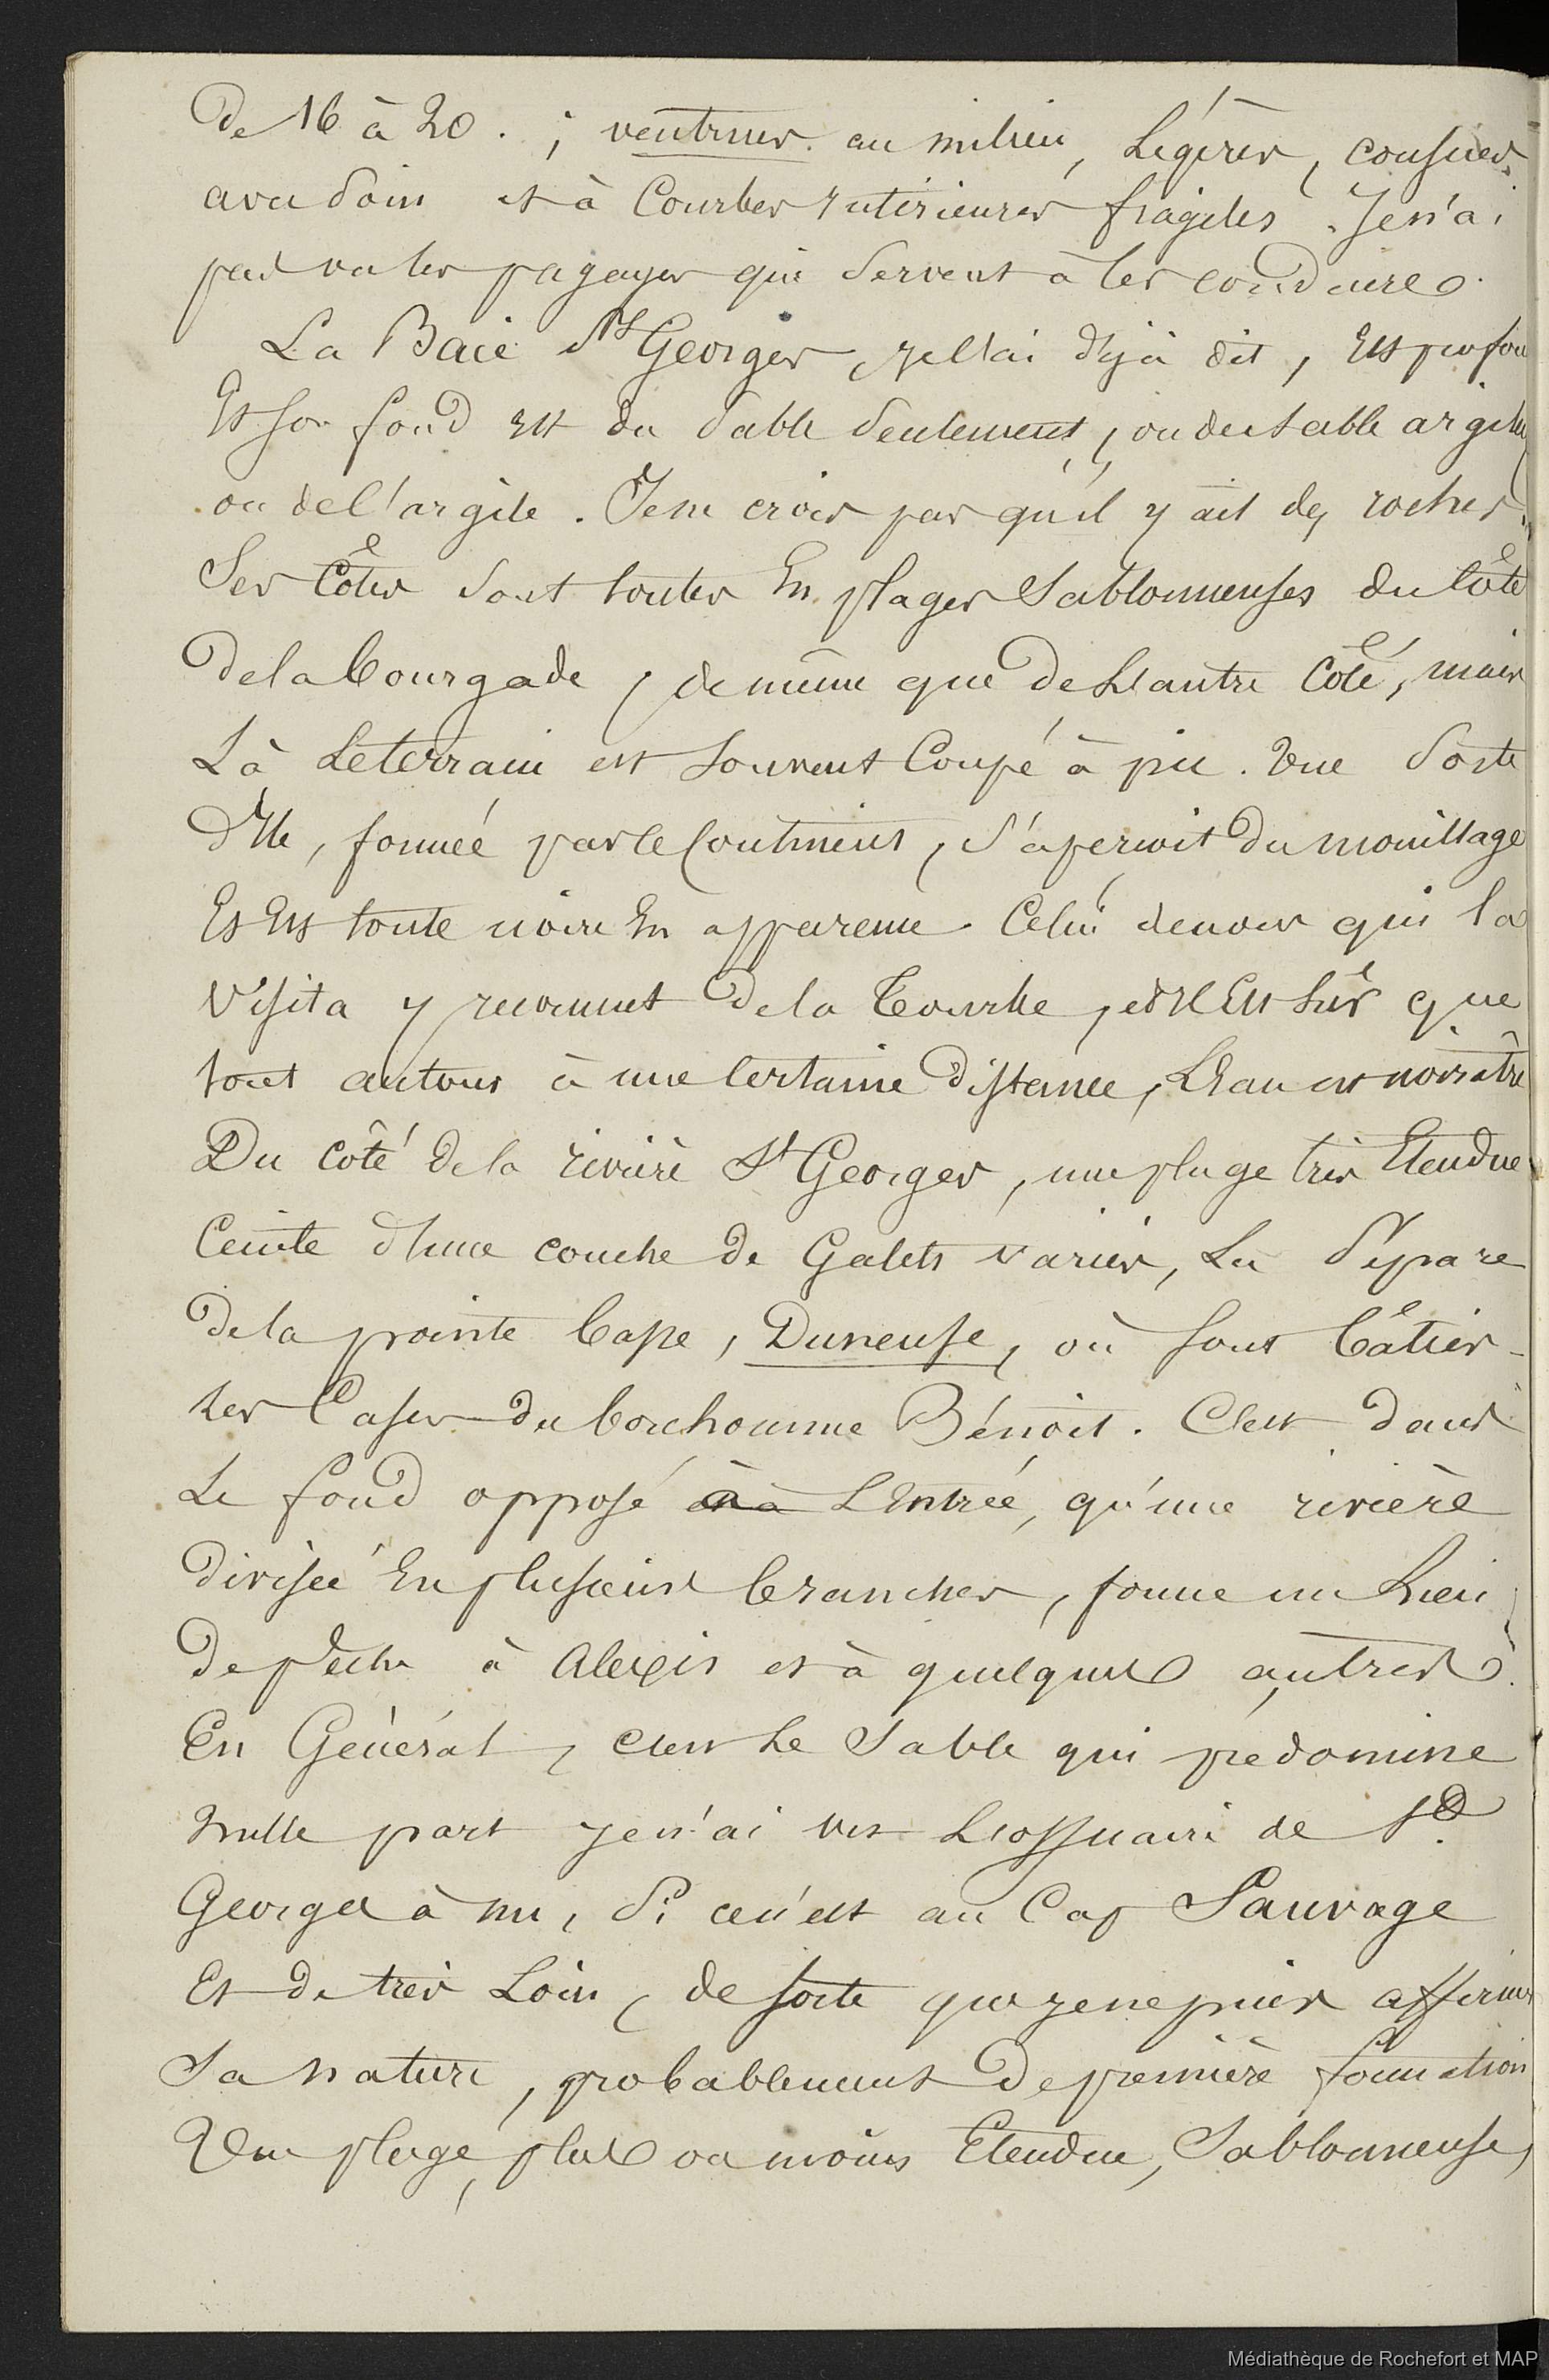 de 16 à 20. ; ventrues au milieu, Légères, cousues
avec soin et à Courbes Intérieures fragiles. Je n'ai
pas vu les pagayes qui servent à les conduire.
La Baie St Georges, je l'ai déjà dit, Est peu
Et son fond est du sable seulement, ou du sable
ou de l'argile. Je ne crois pas qu'il y ait des roches.
Ses Côtes sont toutes En plages Sablonneuses du Côté
de la bourgade, de même que de L'autre Côté, mais
Là Le terrain est souvent Coupé à pic. Une sorte
d'Ile, formée par le Continent, s'aperçoit du mouillage
Et Est toute noire En apparence. Celui de nous qui la
Visita y reconnut de la Tourbe, et Il Est sûr que
tout autour à une Certaine distance, L'Eau est noirâtre
Du côté de la rivière St Georges, une plage très Etendue
Ceinte d'une couche de Galets variés, La sépare
de la pointe basse, Duneuse, où sont bâties
les Cases du bonhomme Bénoit. C'est dans
Le fond opposé à L'Entrée, qu'une rivière
divisée En plusieurs branches, forme un Lieu
de pêche à Alexis et à quelques autres.
En Général, c'est Le Sable qui prédomine
Nulle part je n'ai vu L'ossuaire de
Georges à nu, Si ce n'est au Cap Sauvage
Et de très Loin, de sorte que je ne puis affirmer
Sa nature, probablement de première formation
Une plage, plus ou moins Etendue, Sablonneuse,
Médiathèque de Rochefort et MAP